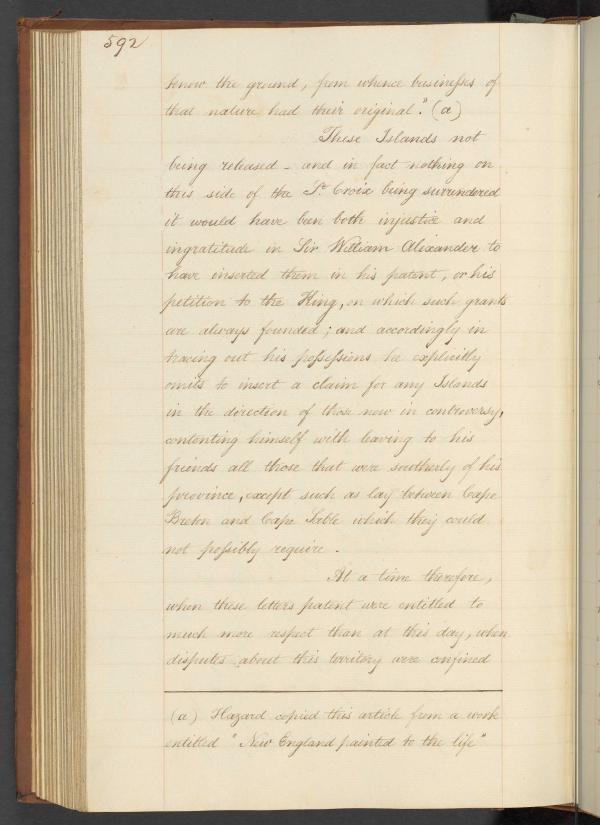 592
know the ground, from whence businesses of
that nature had their original". (a)
These Islands not
being released - and in fact nothing on
this side of the St Croix being surrendered
it would have been both injustice and
ingratitude in Sir William Alexander to
have inserted them in his patent, or his
petition to the King, on which such grants
are always founded; and accordingly in
tracing out his possessions he explicitly
omits to insert a claim for any Islands
in the direction of those now in controversy,
contenting himself with leaving to his
friends all those that were southerly of his
province, except such as lay between Cape
Breton and Cape Sable which they could
not possibly require.
At a time therefore,
when these letters patent were entitled to
much more respect than at this day, when
disputes about this territory were confined
(a) Hazard copied this article from a work
entitled "New England painted to the life"